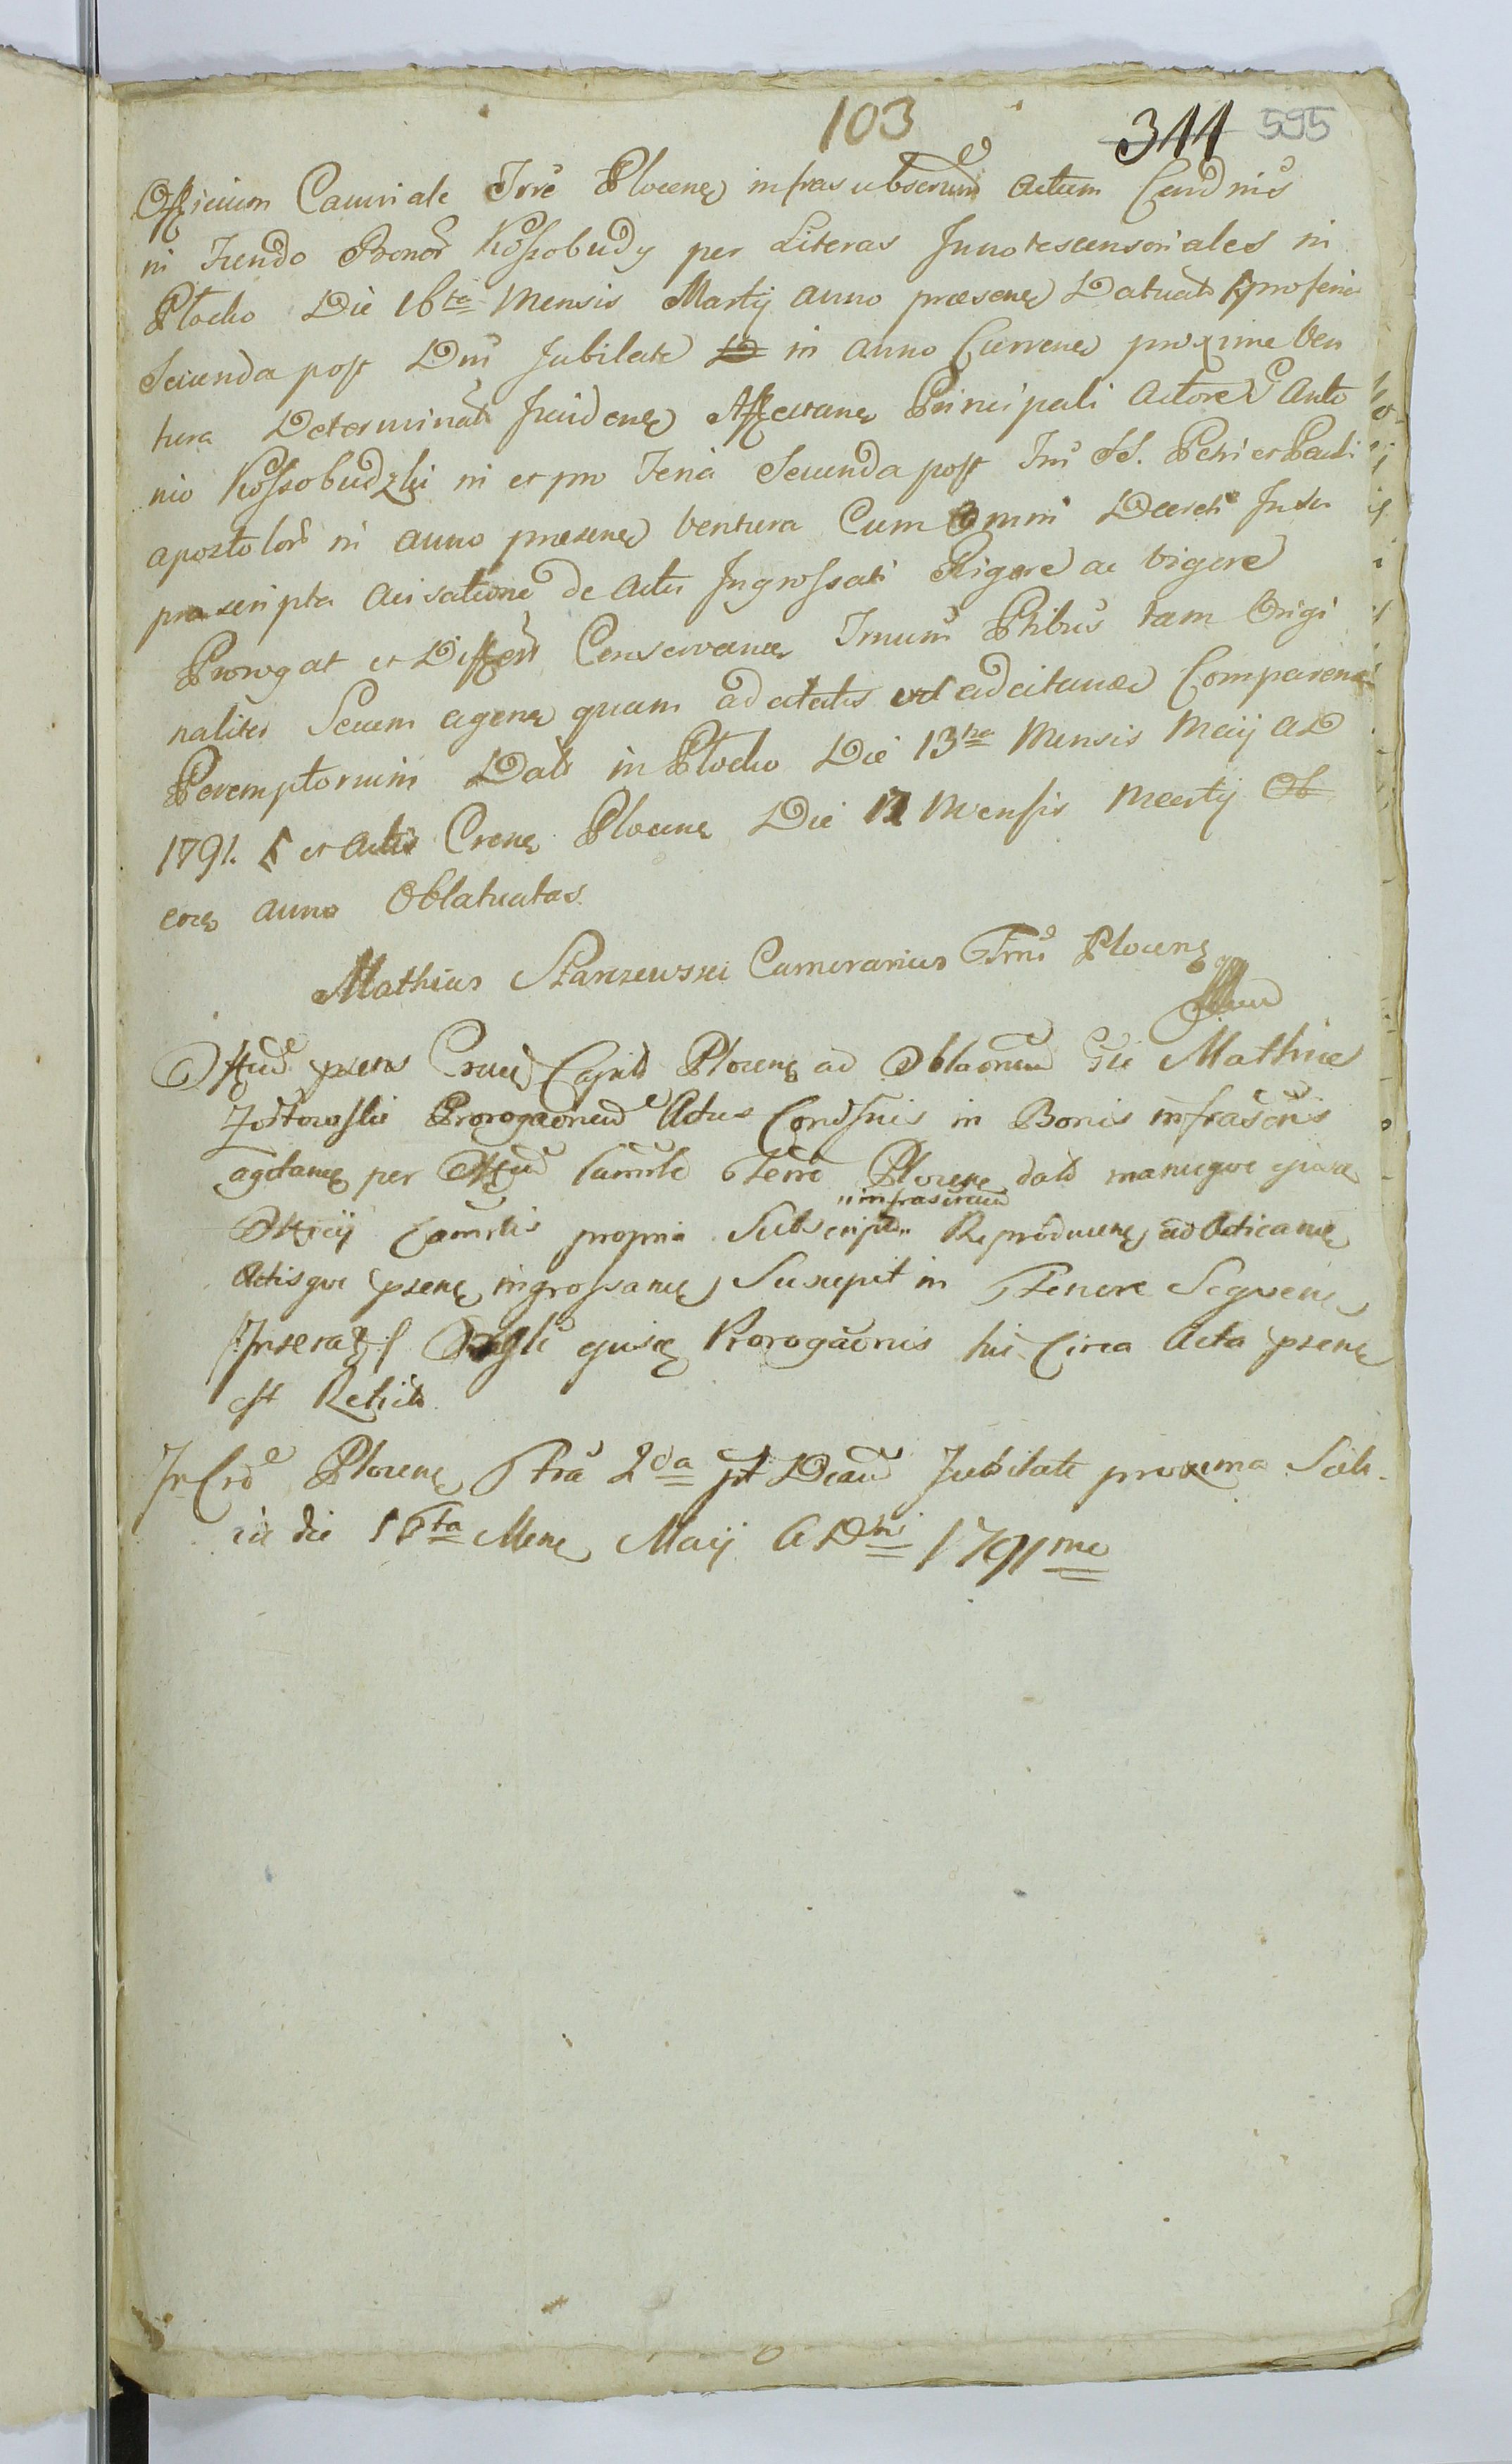 103 311 595
Officium Camriale Trre Plocens infrasubscrum actum Cundnis
in Fundo Bonor Kossobudy per Literas Innotescensoriales in
Plocko Die 16ta Mensis Martij anno praesens Datuats pro feria
Secunda post Dni Jubilate D in anno Currens proxime Ven
tura Determinats Incidens Affectans Principali Actore G Anto
nio Kossobudzki in et pro Feria Secunda post Fm SS. Petri et Pauli
apostolor in anno praesens ventura Cum Omni Decreti
praescripta de actu Ingrossati Rigore ac vigore
Prorogat et Differt Conservans Trnum Ptibus tam Origi
naliter Secum agens quam adcitatis vel adcitands Comparens
Peremptorium Dats in Plocko Die 13na Mensis Maij AD
1791. et actis Crens Plocens Die 17 Mensis Martij Ob
eoq anno Oblatuatas.
Mathias Starzewski Camerarius Trrae Plocens
mp
Offium prens Crense Capits Plocens ad Oblaonem Gsi Mathiae
Prorogaonem Actus Condsnis in Bonis infrascris
agitans per Offium Camrle Terre Plocens dats manuque ejusq
Officij Camrlis propria Subscripts „infrascrum„ Reproducens ad Acticans
Actisque prens ingrossans, Suscepit in Tenore Sequens
Inserats Orgle ejusq Prorogaonis hic Circa Acta prens
est Relict.
In Crd Plocens Fria 2da pt Dcam Jubilate proxima Scili
cet die 16ta Mens Maij A Dni 1791mo